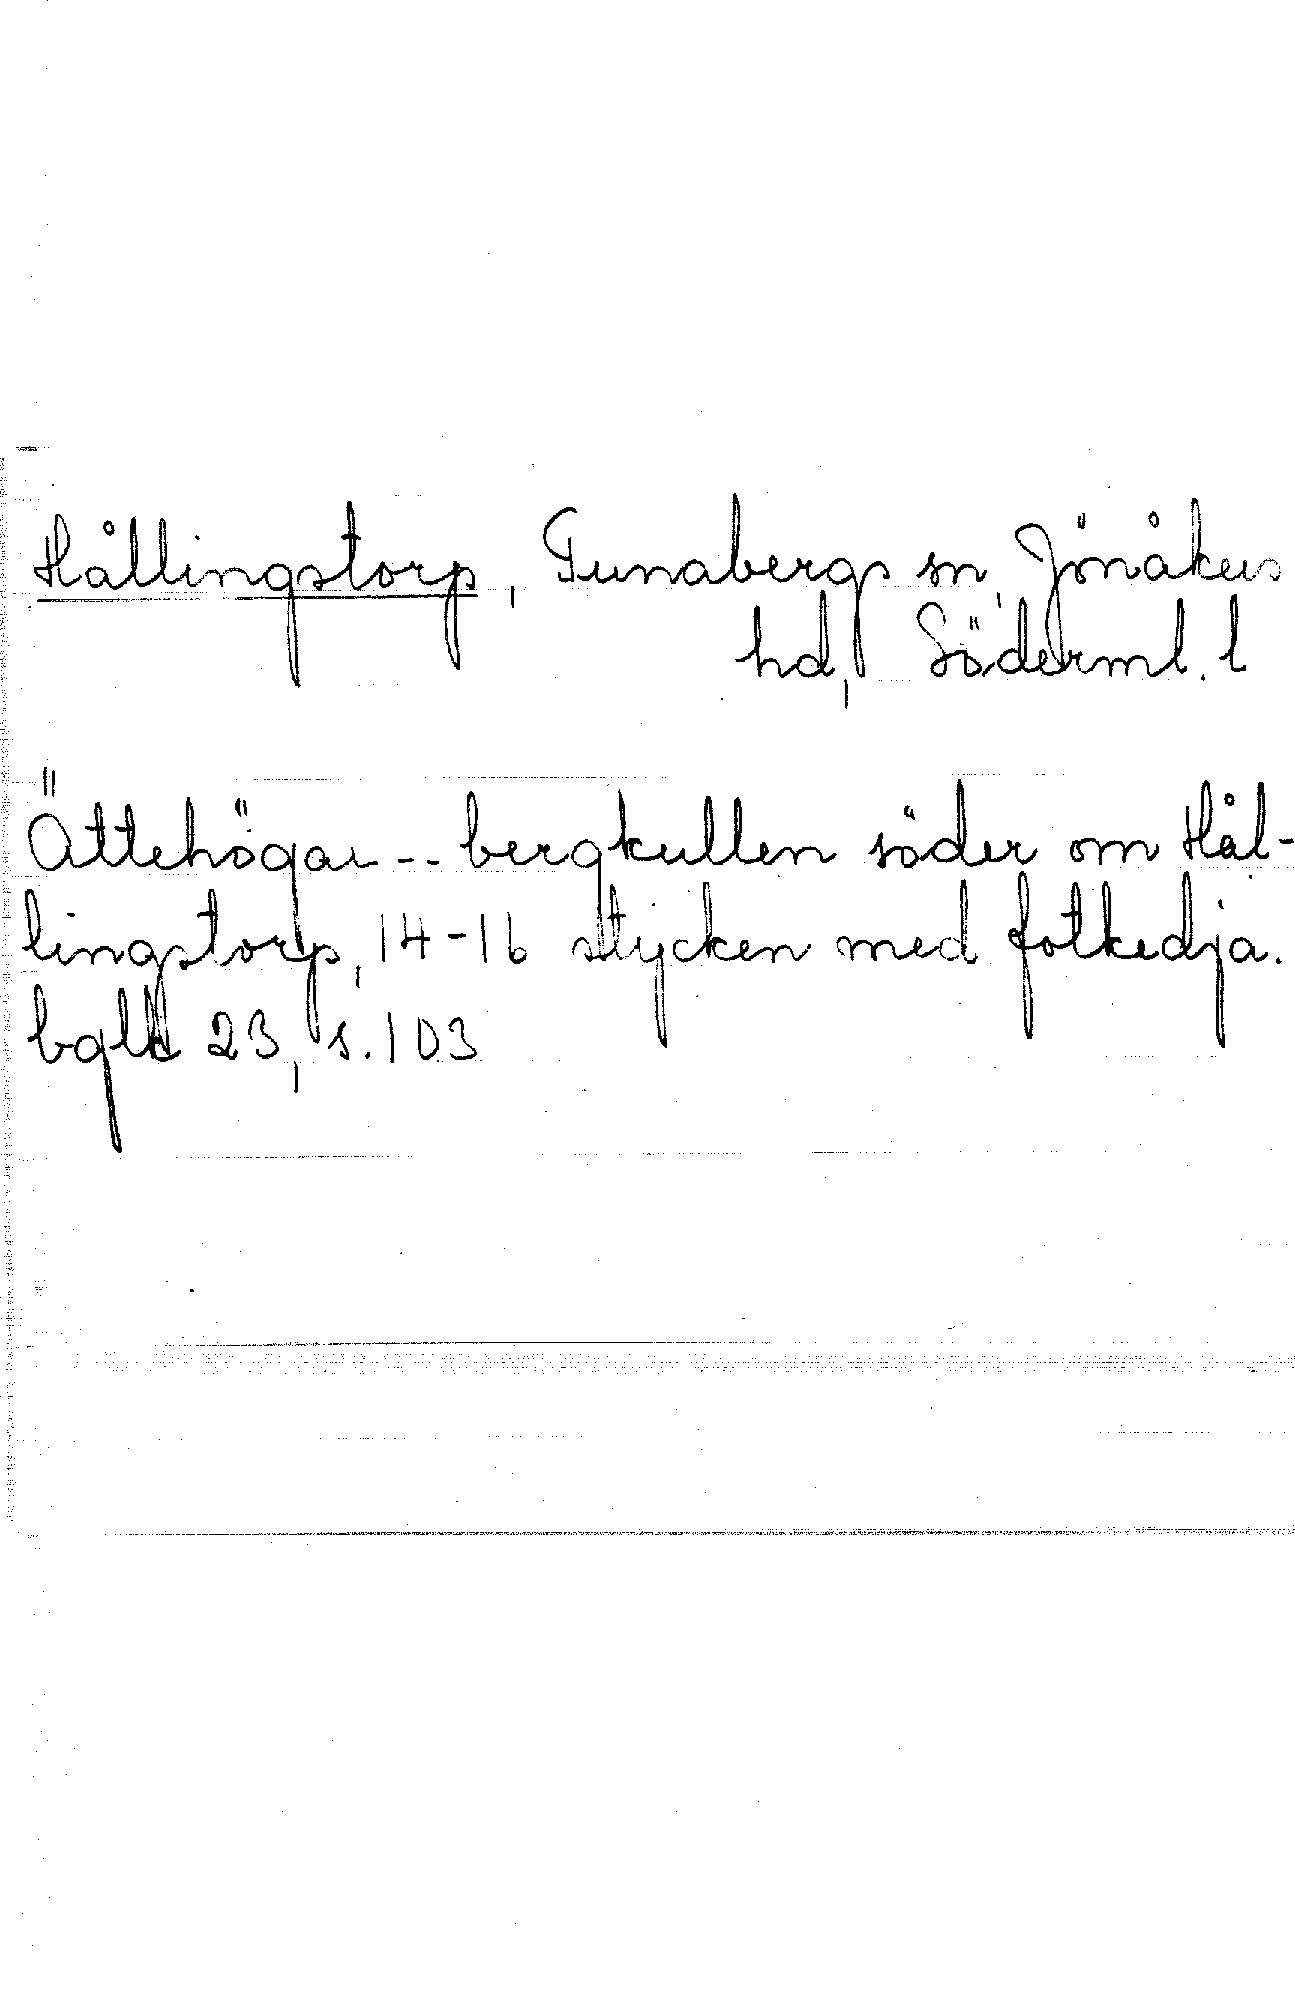 Hållingstorp, Tunabergs sn, Jönåkers
hd, Söderml. l
Ättehögar -- bergkullen söder om Hål-
lingstorp, 14-16 stycken med fotkedja.
bglk 23, s. 103